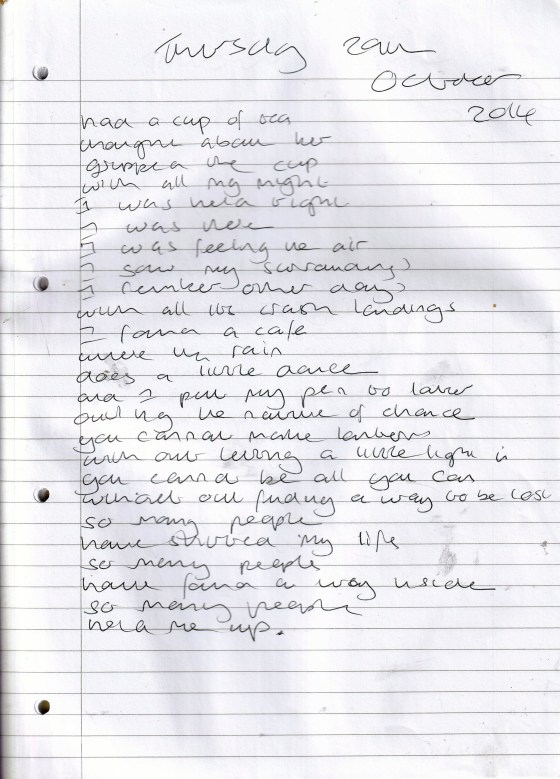 Thursday
October
2014
had a cup of tea
thought about her
gripped the cup
with all my might
I was held tight
I was here
I was feeling the air
I saw my surroundings
I remember other days
with all its crash landings
I found a cafe
where the rain
does a little dance
and I put my pen to
the nature of chance
you cannot make lanterns
with out letting a little light in
you cannot be all you can
without out finding a way to be lost
so many people
have my life
so many people
have found a way inside
so many people
held me up.